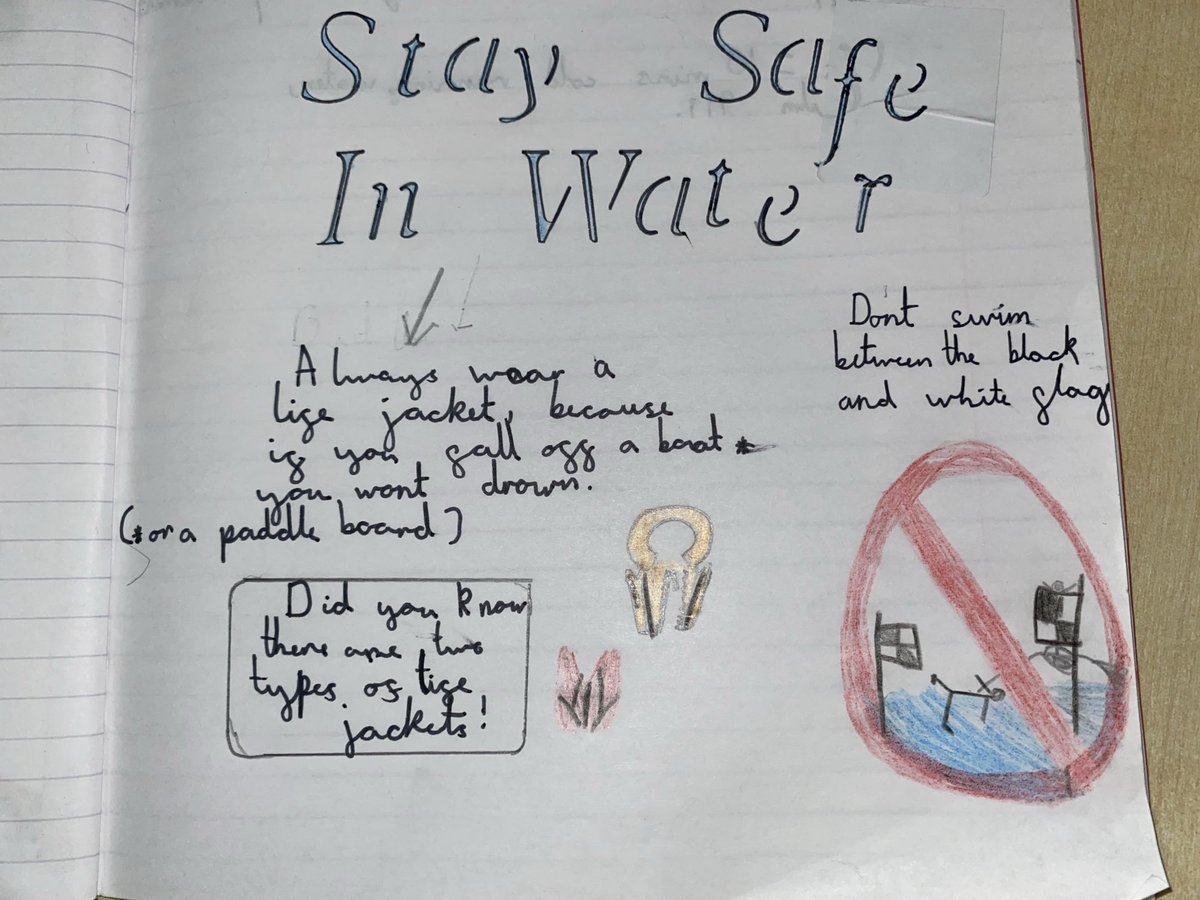 Stay Safe
In Water
Always wear a
life jacket, because
if you fall off a boat *
you wont drown.
(* or a paddle board)
Did you know
there are two
types of life
jackets!
Dont swim
between the black
and white flag